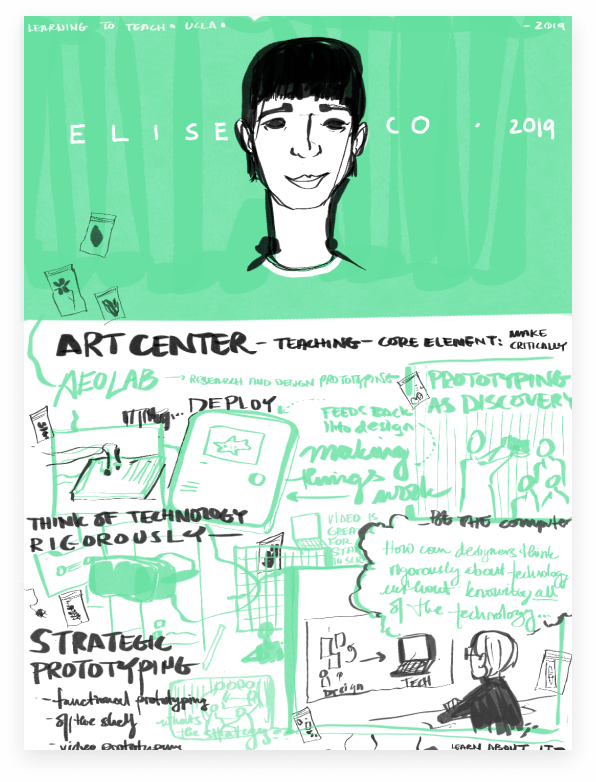 LEARNING TO TEACH • UCLA •
- 2019
ELISE CO · 2019
ART CENTER - TEACHING - CORE ELEMENT: MAKE CRITICALLY
AEOLAB → RESEARCH AND DESIGN PROTOTYPING
DEPLOY
FEEDS BACK
INTO design
making
things
work
PROTOTYPING
AS DISCOVERY
THINK OF TECHNOLOGY
RIGOROUSLY
VIDEO IS
GREAT
FOR
BE THE computer
How can designers think
rigorously about technology
without knowing all
of the technology...
STRATEGIC
PROTOTYPING
- functional prototyping
- off the shelf
- video prototyping
what's
the strategy?
DESIGN
TECH
LEARN ABOUT IT